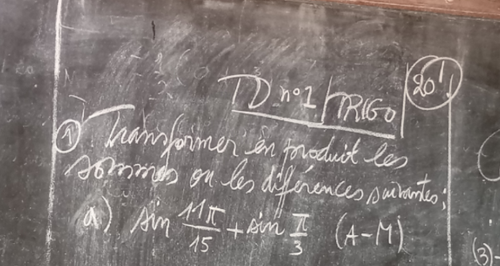 TD n°1 TRIGO 20'!
① Transformer en produit les
sommes ou les diférences suivantes;
a) sin 11π/15 + sin π/3 (A-M)
(3)-